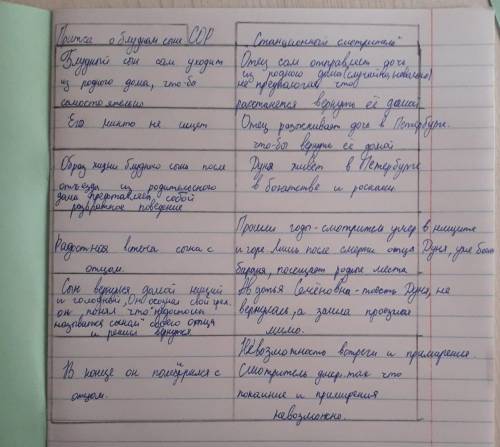 Притча о блудном сыне СОР
Станционный смотритель"
Блудный сын сам уходит
из родного дома, что-бы
самостоятельно
Отец сам отправляет дочь
из родного дома (случайно,
не предпологив что
расстанется вернуть её домой
Его никто не ищет
Отец разыскивает дочь в Петербурге.
что-бы вернуть её домой
Образ жизни блудного сына после
отъезда из родительского
дома представляет собой
развратное поведение
Дуня живёт в Петербурге
в богатстве и роскоши
Радостная встреча сына с
отцом.
Прошли годы-смотритель умер в нищите
и горе лишь после смерти отца Дуня, уже богат
барыня, посещает родные места
Сын вернулся домой нищий
и голодный, Он осознал свой грех.
он понял что недостоин
называтся сыном своего отца
и решил вернутся
Авдотья Семёновна-тоесть Дуня, не
вернулась, а заехала проезжая
мимо.
В конце он помирился с
отцом.
Невозможность встречи и примирения.
Смотритель умер. так что
покаяние и примирения
невозможно.